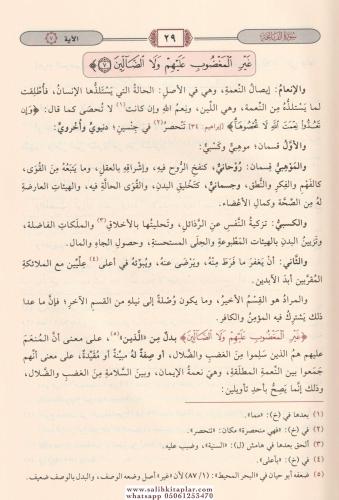 سورة الفاتحة ٢٩ الآية ٧
غَيْرِ الْمَغْضُوبِ عَلَيْهِمْ وَلَا الضَّالِّينَ ﴿٧﴾
والإنعامُ: إيصالُ النِّعمةِ، وهي في الأصلِ: الحالةُ التي يَستلذُّها الإنسانُ، فأُطلِقَت
لما يَستلذُّه من النَّعمة، وهي اللِّين، ونِعَمُ اللهِ وإن كانت(١) لا تُحصَى كما قال: ﴿وَإِن
تَعُدُّوا نِعْمَتَ اللَّهِ لَا تُحْصُوهَا﴾ [إبراهيم: ٣٤] تَنحصر(٢) في جنسين؛ دنيويٍّ وأُخرويٍّ:
والأوَّل قسمان: موهبيٌّ وكَسْبيٌّ:
والمَوْهبيُّ قِسمان: رُوحَانيٌّ، كنفخِ الرُّوح فيه، وإشراقِه بالعقلِ، وما يَتبَعُه مِن القُوَى،
كالفهْمِ والفِكرِ والنُّطق، وجِسمانيٌّ، كتخليقِ البدَنِ، والقُوَى الحالَّةِ فيه، والهيئاتِ العارضةِ
له مِن الصِّحَّة وكمالِ الأعضاء.
والكَسبيُّ: تزكيةُ النَّفسِ عن الرَّذائلِ، وتحليتُها بالأخلاقِ(٣) والملَكاتِ الفاضلة،
وتَزيينُ البدنِ بالهيئات المَطبوعةِ والحِلَى المستحسنة، وحصولِ الجاهِ والمال.
والثَّاني: أنْ يَغفِرَ ما فَرَطَ مِنْهُ، ويَرْضَى عنه، ويُبوِّئه في أعلى(٤) عِلِّيِّين مع الملائكةِ
المُقرَّبين أبدَ الآبدين.
والمرادُ هو القِسْمُ الأخيرُ، وما يكون وُصْلةً إلى نيلهِ من القسم الآخرِ؛ فإنَّ ما عدا
ذلك يَشترِكُ فيه المؤمنُ والكافر.
﴿غَيْرِ الْمَغْضُوبِ عَلَيْهِمْ وَلَا الضَّالِّينَ﴾ بدلٌ مِن «الَّذين»(٥)، على معنى أنَّ المُنعَمَ
عليهم همُ الذين سَلِموا مِنَ الغضبِ والضَّلالِ، أو صِفةٌ له مبيِّنةٌ أو مُقيِّدةٌ، على معنى أنَّهم
جَمَعوا بين النِّعمةِ المطلَقةِ، وهي نعمةُ الإيمان، وبينَ السَّلامةِ مِنَ الغضبِ والضَّلال،
وذلك إنَّما يَصِحُّ بأحدِ تأويلَين:
(١) بعدها في (خ): «مما».
(٢) في (خ): «فهي منحصرة» مكان: «تنحصر».
(٣) ألحق بعدها في هامش (ل): «السنية»، وضبب عليه.
(٤) في (خ): «بأعلى».
(٥) ضعفه أبو حيان في «البحر المحيط»: (١/ ٨٧) لأن «غير» أصل وضعه الوصف، والبدل بالوصف ضعيف.
www.salihkitaplar.com
whatsapp 05061253470